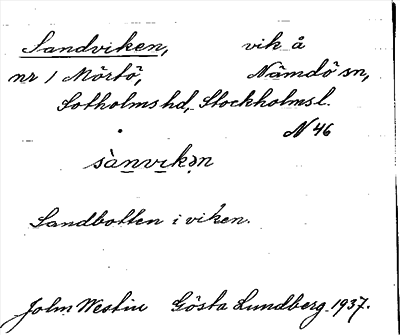 Sandviken, vik å
nr 1 Mörtö, Nämdö sn,
Sotholms hd, Stockholms l.
N 46
sànvikən
Sandbotten i viken.
John Westin Gösta Lundberg 1937.